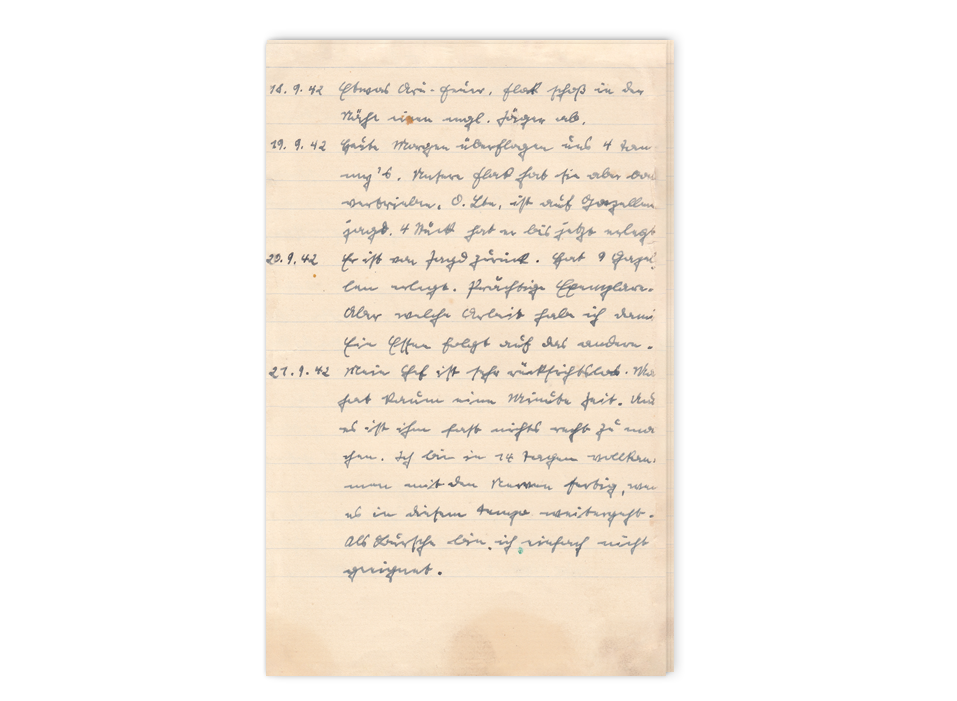 18.9.42 Etwas Ari-Feuer, Flak schoß in der
Nähe einen engl. Jäger ab.
19.9.42 Heute Morgen überflogen uns 4
Unsere Flak hat sie aber
vertrieben. O.Ltn. ist auf Gazellen
jagd. 4 Stück hat er bis jetzt erlegt
20.9.42 Er ist von Jagd zurück. Hat 9 Gazel
len erlegt. Prächtige Exemplare.
Aber welche Arbeit habe ich dami
Ein Essen folgt auf das andere.
21.9.42 Mein Chef ist sehr rücksichtslos. Ma
hat kaum eine Minute Zeit. Und
es ist ihm fast nichts recht zu ma
chen. Ich bin in 14 Tagen vollkom
men mit den Nerven fertig, wen
es in diesem Tempo weitergeht.
Als Bursche bin ich einfach nicht
geeignet.